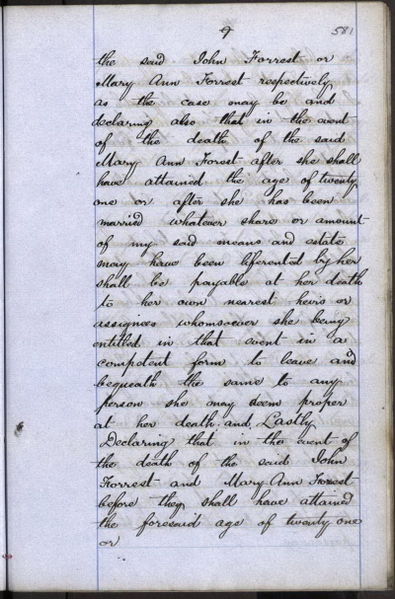 9
581
the said John Forrest or
Mary Ann Forrest respectively
as the case may be and
declaring also that in the event
of the death of the said
Mary Ann Forest after she shall
have attained the age of twenty
one or after she has been
married whatever share or amount
of my said means and estate
may have been liferented by her
shall be payable at her death
to her own nearest heirs or
assignees whomsoever she being
entitled in that event in a
competent form to leave and
bequeath the same to any
person she may deem proper
at her death. and Lastly
Declaring that in the event of
the death of the said John
Forrest and Mary Ann Forrest
before they shall have attained
the foresaid age of twenty one
or